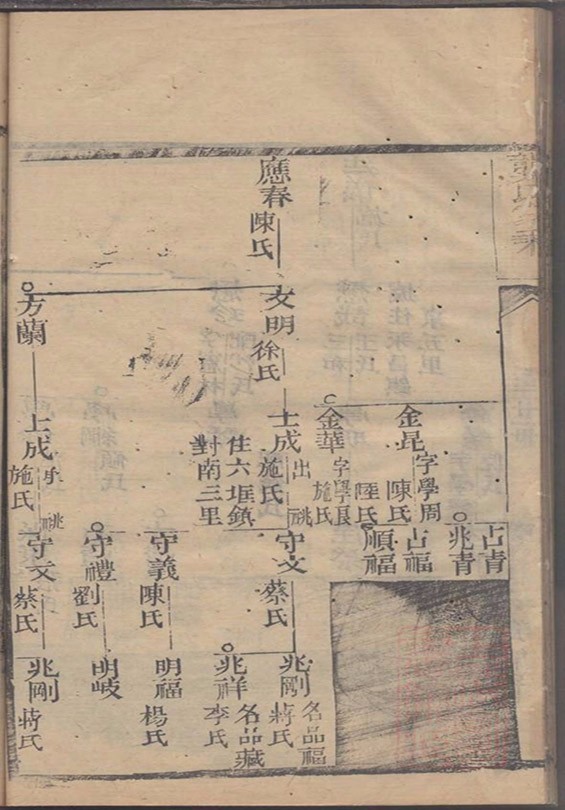 占青
兆青
占福
順福
金昆
字學周
陳氏
金華
字學良
施氏
應春
陳氏
文明
徐氏
士成
出祧
施氏
住六垤鎮
對南三里
守文
蔡氏
兆剛
名品福
蔣氏
兆祥
名品藏
李氏
守義
陳氏
明福
楊氏
守禮
劉氏
明岐
方蘭
上成
施氏
守文
蔡氏
兆剛
蔣氏